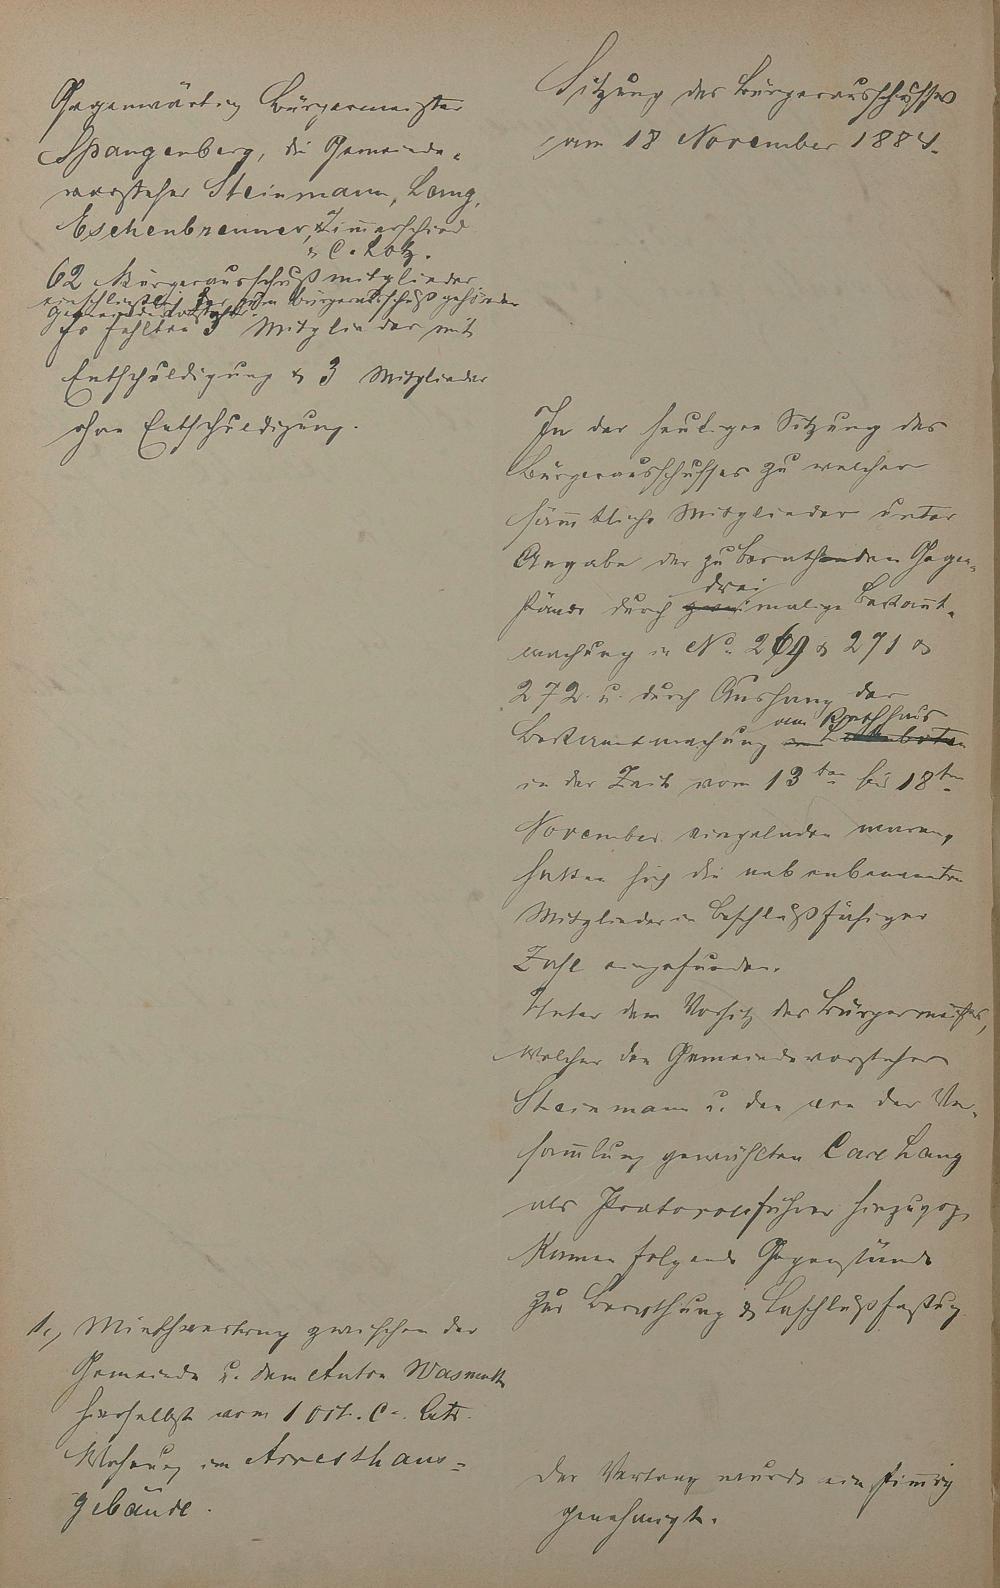 Gegenwärtig Bürgermeister
Spangenberg, die Gemeinde-
vorsteher Steinmann, Lang,
Eschenbrenner, Zimmerschied
& C. Lotz.
62 Bürgerausschußmitglieder
einschließlich der zum Bürgerausschuß gehörenden
Gemeindevorsteher.
Es fehlten 3 Mitglieder mit
Entschuldigung & 3 Mitglieder
ohne Entschuldigung.
Sitzung des Bürgerausschusses
vom 18 November 1884.
In der heutigen Sitzung des
Bürgerausschusses zu welcher
sämtliche Mitglieder unter
Angabe der zu berathenden Gegen-
stände durch drei malige Bekannt-
machung in No. 269 & 271 &
272 u. durch Aushang der
Bekanntmachung am Rathhaus
in der Zeit vom 13ten bis 18ten
November eingeladen waren,
hatten sich die nebenbenannten
Mitglieder in beschlußfähiger
Zahl eingefunden.
Unter dem Vorsitz des Bürgermeisters,
welcher den Gemeindevorsteher
Steinmann u. den von der Ver-
sammlung gewählten Carl Lang
als Protocollführer hinzuzog,
kamen folgende Gegenstände
zur Berathung & Beschlußfassung
1., Miethvertrag zwischen der
Gemeinde u. dem Anton Wasmuth
hierselbst vom 1 Oct. c. btr.
Wohnung im Arresthaus-
gebäude.
Der Vertrag wurde einstimmig
genehmigt.